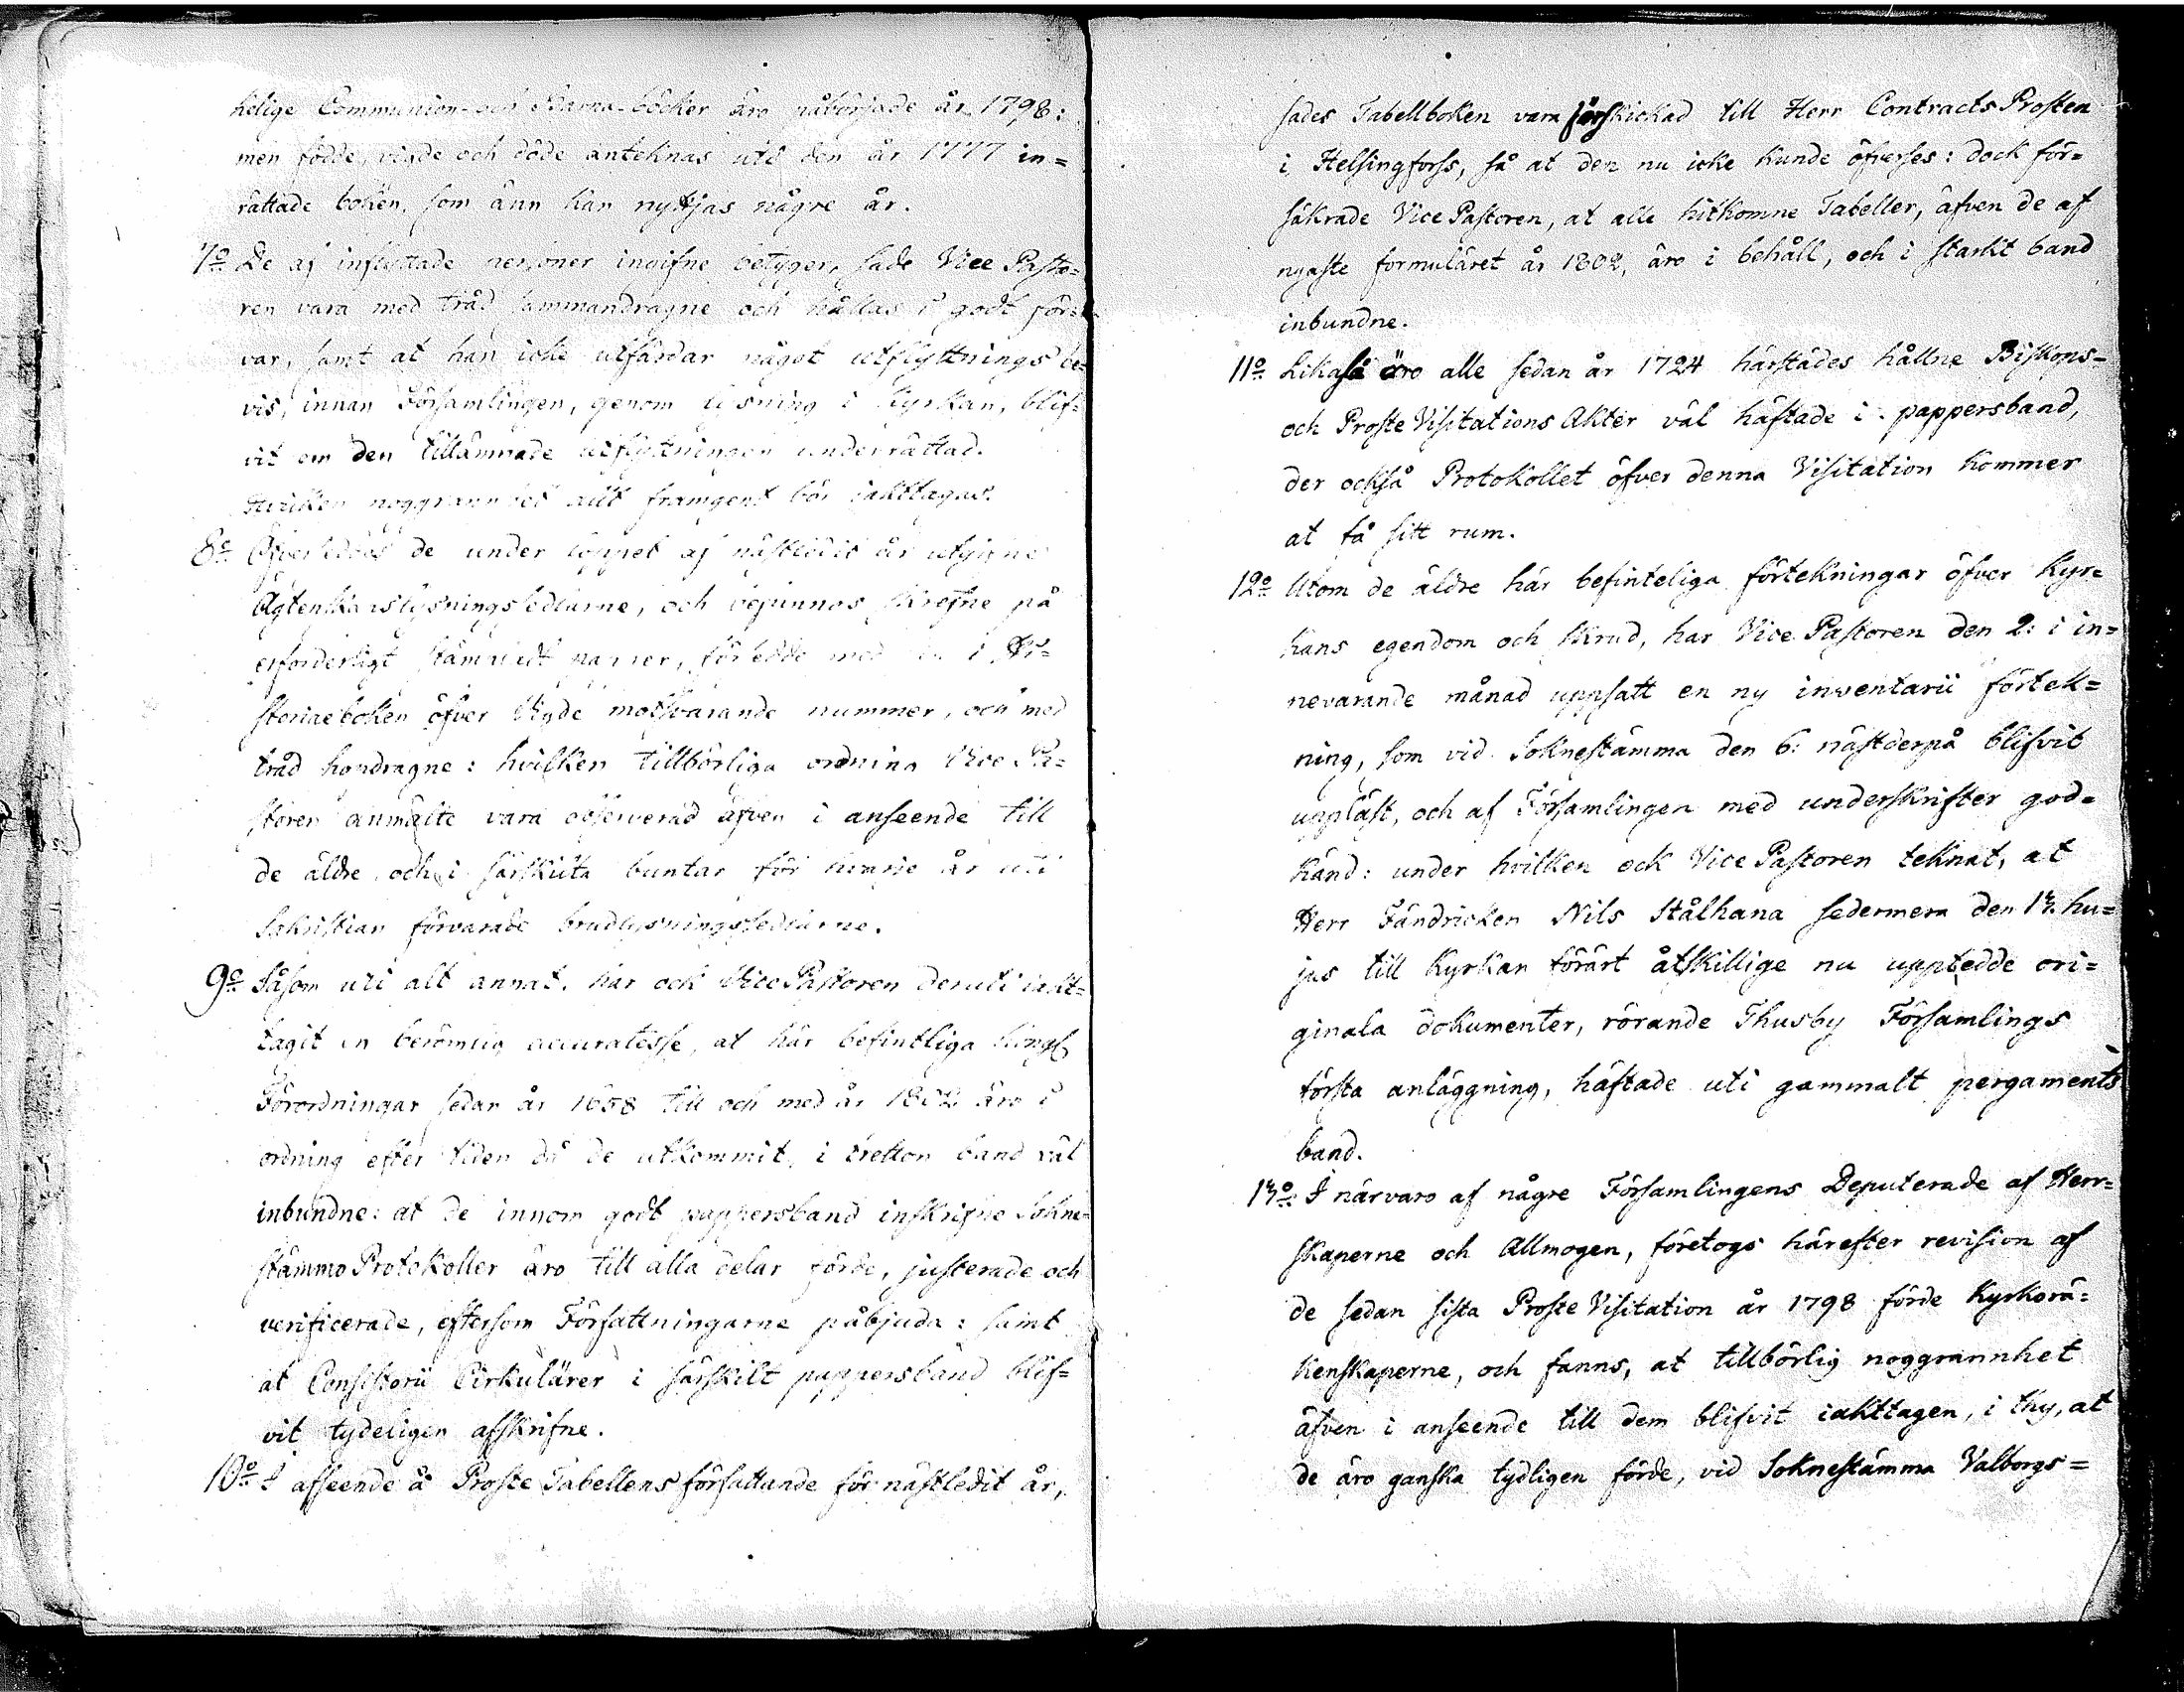 helige Communion- och Barna-böcker äro påbörjade år 1798:
men födde, vigde och döde anteknas uti den år 1777 in=
rättade boken, som änn kan nyttjas någre år.
7o De af inflyttade personer ingifne betyger, sade Vice Pasto=
ren vara med tråd sammandragne och hållas i godt för=
var, samt at han icke utfärdar något utflyttnings be=
vis, innan Församlingen, genom lysning i Kyrkan, blif=
vit om den tillämnade utflyttningen underrättad.
Hvilken noggrannhet allt framgent bör iakttagas.
8o Öfversedos de under loppet af nästledit år utgifne
Ägtenskapslysningssedlarne, och befunnos skrefne på
erforderligt stämpladt papper, försedde med i Hi=
storiaeboken öfver Vigde motsvarande nummer, och med
tråd hopdragne: hvilken tillbörliga ordning Vice Pa=
storen anmälte vara observerad äfven i anseende till
de äldre, och i särskilta buntar för hvarje år uti
Sakristian förvarade brudlysningssedlarne.
9o Såsom uti alt annat, har ock Vice Pastoren deruti iakt=
tagit en berömlig accuratesse, at här befintliga Kongl.
Förordningar sedan år 1658 till och med år 1802 äro i
ordning efter tiden då de utkommit, i tretton band väl
inbundne: at de innom godt pappersband inskrifne Sokne=
stämmo Protokoller äro till alla delar förde, justerade och
verificerade, eftersom Författningarne påbjuda: samt
at Consistorii Cirkulärer i särskilt pappersband blif=
vit tydeligen afskrifne.
10o I afseende å Proste Tabellens författande för nästledit år,
sades Tabellboken vara försskickad till Herr Contracts Prosten
i Helsingforss, så at den nu icke kunde öfverses: dock för=
säkrade Vice Pastoren, at alle hitkomne Tabeller, äfven de af
nyaste formuläret år 1802, äro i behåll, och i starkt band
inbundne.
11o Likaså äro alle sedan år 1724 härstädes hållne Biskops=
och Proste Visitations Akter väl häftade i pappersband,
der också Protokollet öfver denna Visitation kommer
at få sitt rum.
12o Utom de äldre här befinteliga förtekningar öfver Kyr=
kans egendom och skrud, har Vice Pastoren den 2: i in=
nevarande månad uppsatt en ny inventarii förtek=
ning, som vid Soknestämma den 6: nästderpå blifvit
uppläst, och af Församlingen med underskrifter god=
känd: under hvilken ock Vice Pastoren teknat, at
Herr Fändricken Nils Stålhana sedermera den 13. hu=
jus till Kyrkan förärt åtskillige nu uppteddе ori=
ginala dokumenter, rörande Thusby Församlings
första anläggning, häftade uti gammalt pergaments
band.
13o I närvaro af någre Församlingens Deputerade af Herr=
skaperne och Allmogen, företogs härefter revision af
de sedan sista Proste Visitation år 1798 förde Kyrkorä=
kenskaperne, och fanns, at tillbörlig noggrannhet
äfven i anseende till dem blifvit iakttagen, i thy, at
de äro ganska tydligen förde, vid Soknestämma Valborgs=